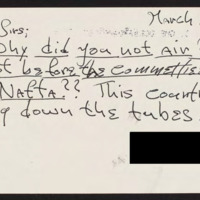 March
Sirs;
Why did you not air
t before the committee
Nafta?? This countr
g down the tubes